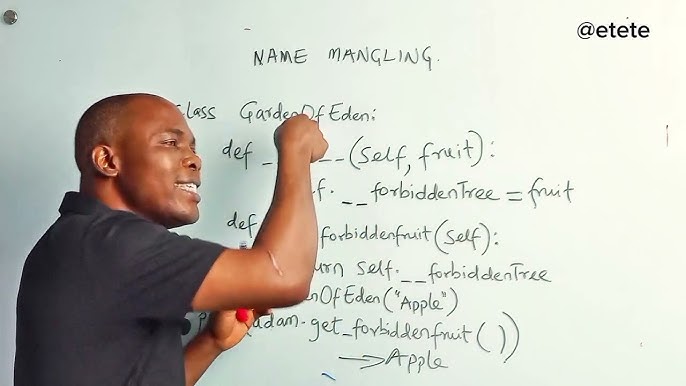 @etete
NAME MANGLING.
class GardenOfEden:
def __ __(self, fruit):
.__forbiddenTree = fruit
def forbiddenfruit(self):
self.__forbiddenTree
OfEden("Apple")
adam.get_forbiddenfruit())
→Apple